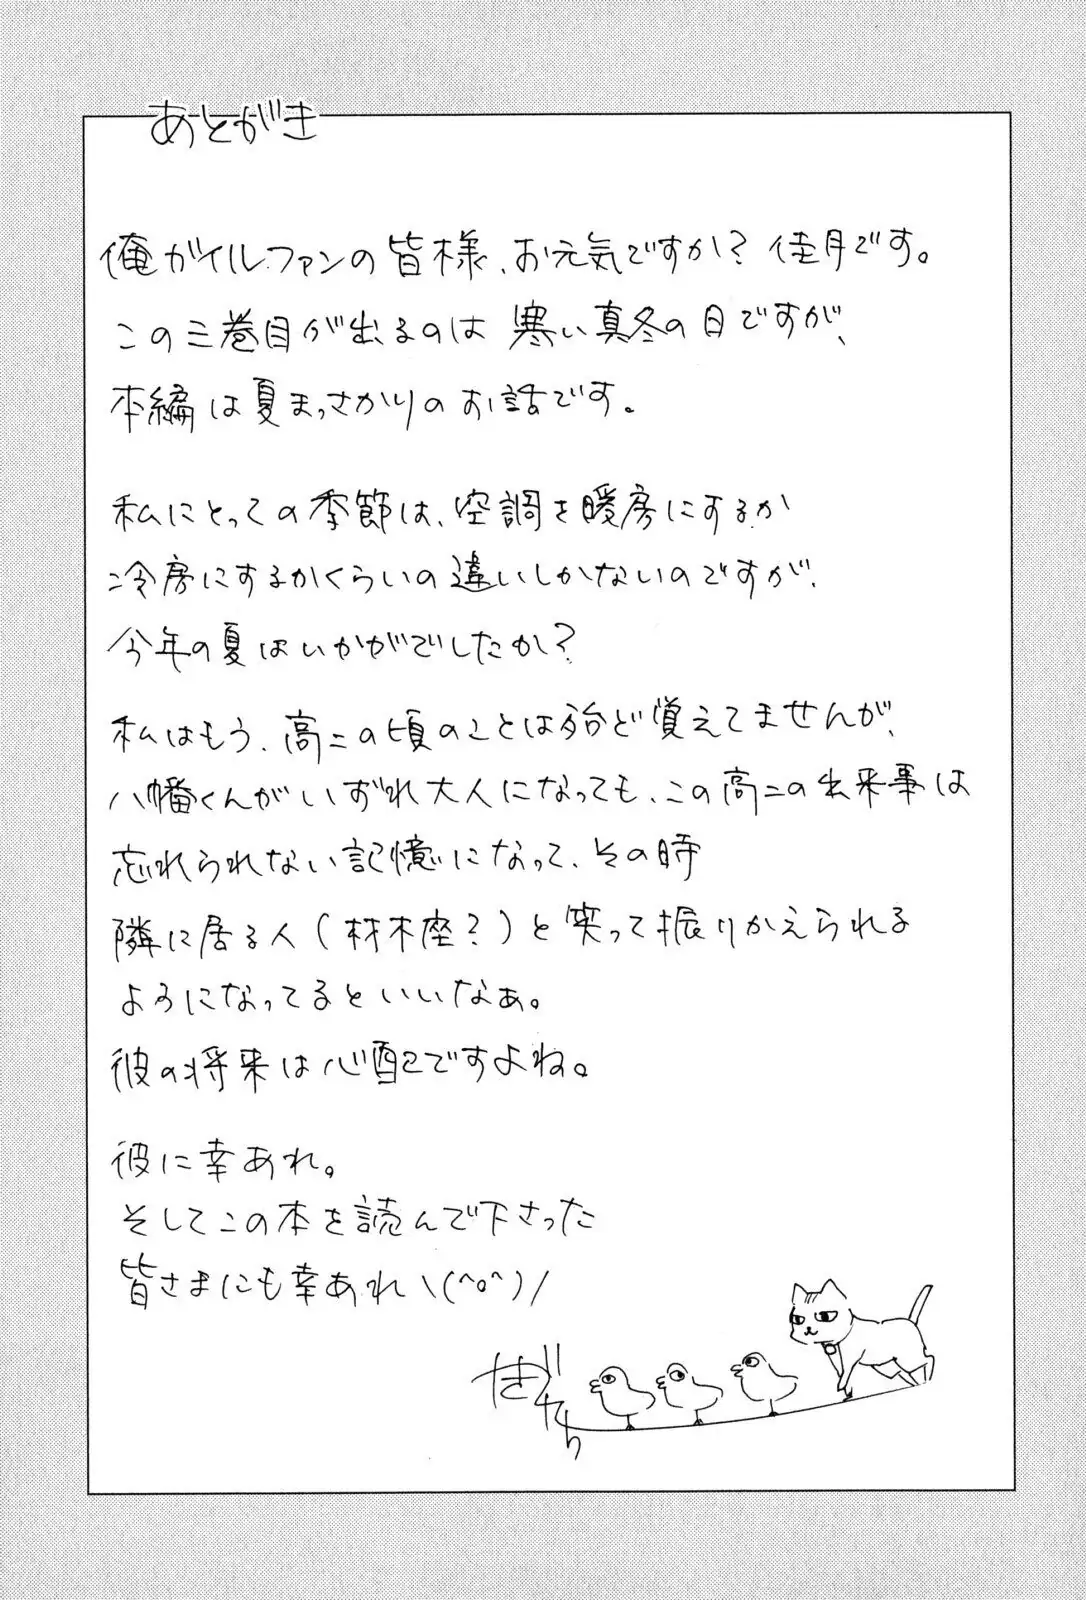 あとがき
俺ガイルファンの皆様、お元気ですか？佳月です。
この三巻目が出るのは寒い真冬の日ですが、
本編は夏まっさかりのお話です。
私にとっての季節は、空調を暖房にするか
冷房にするかくらいの違いしかないのですが、
今年の夏はいかがでしたか？
私はもう、高二の頃のことは殆ど覚えてませんが、
八幡くんがいずれ大人になっても、この高二の出来事は
忘れられない記憶になって、その時
隣に居る人(材木座？)と笑って振りかえられる
ようになってるといいなぁ。
彼の将来は心配ですよね。
彼に幸あれ。
そしてこの本を読んで下さった
皆さまにも幸あれ\(^o^)/